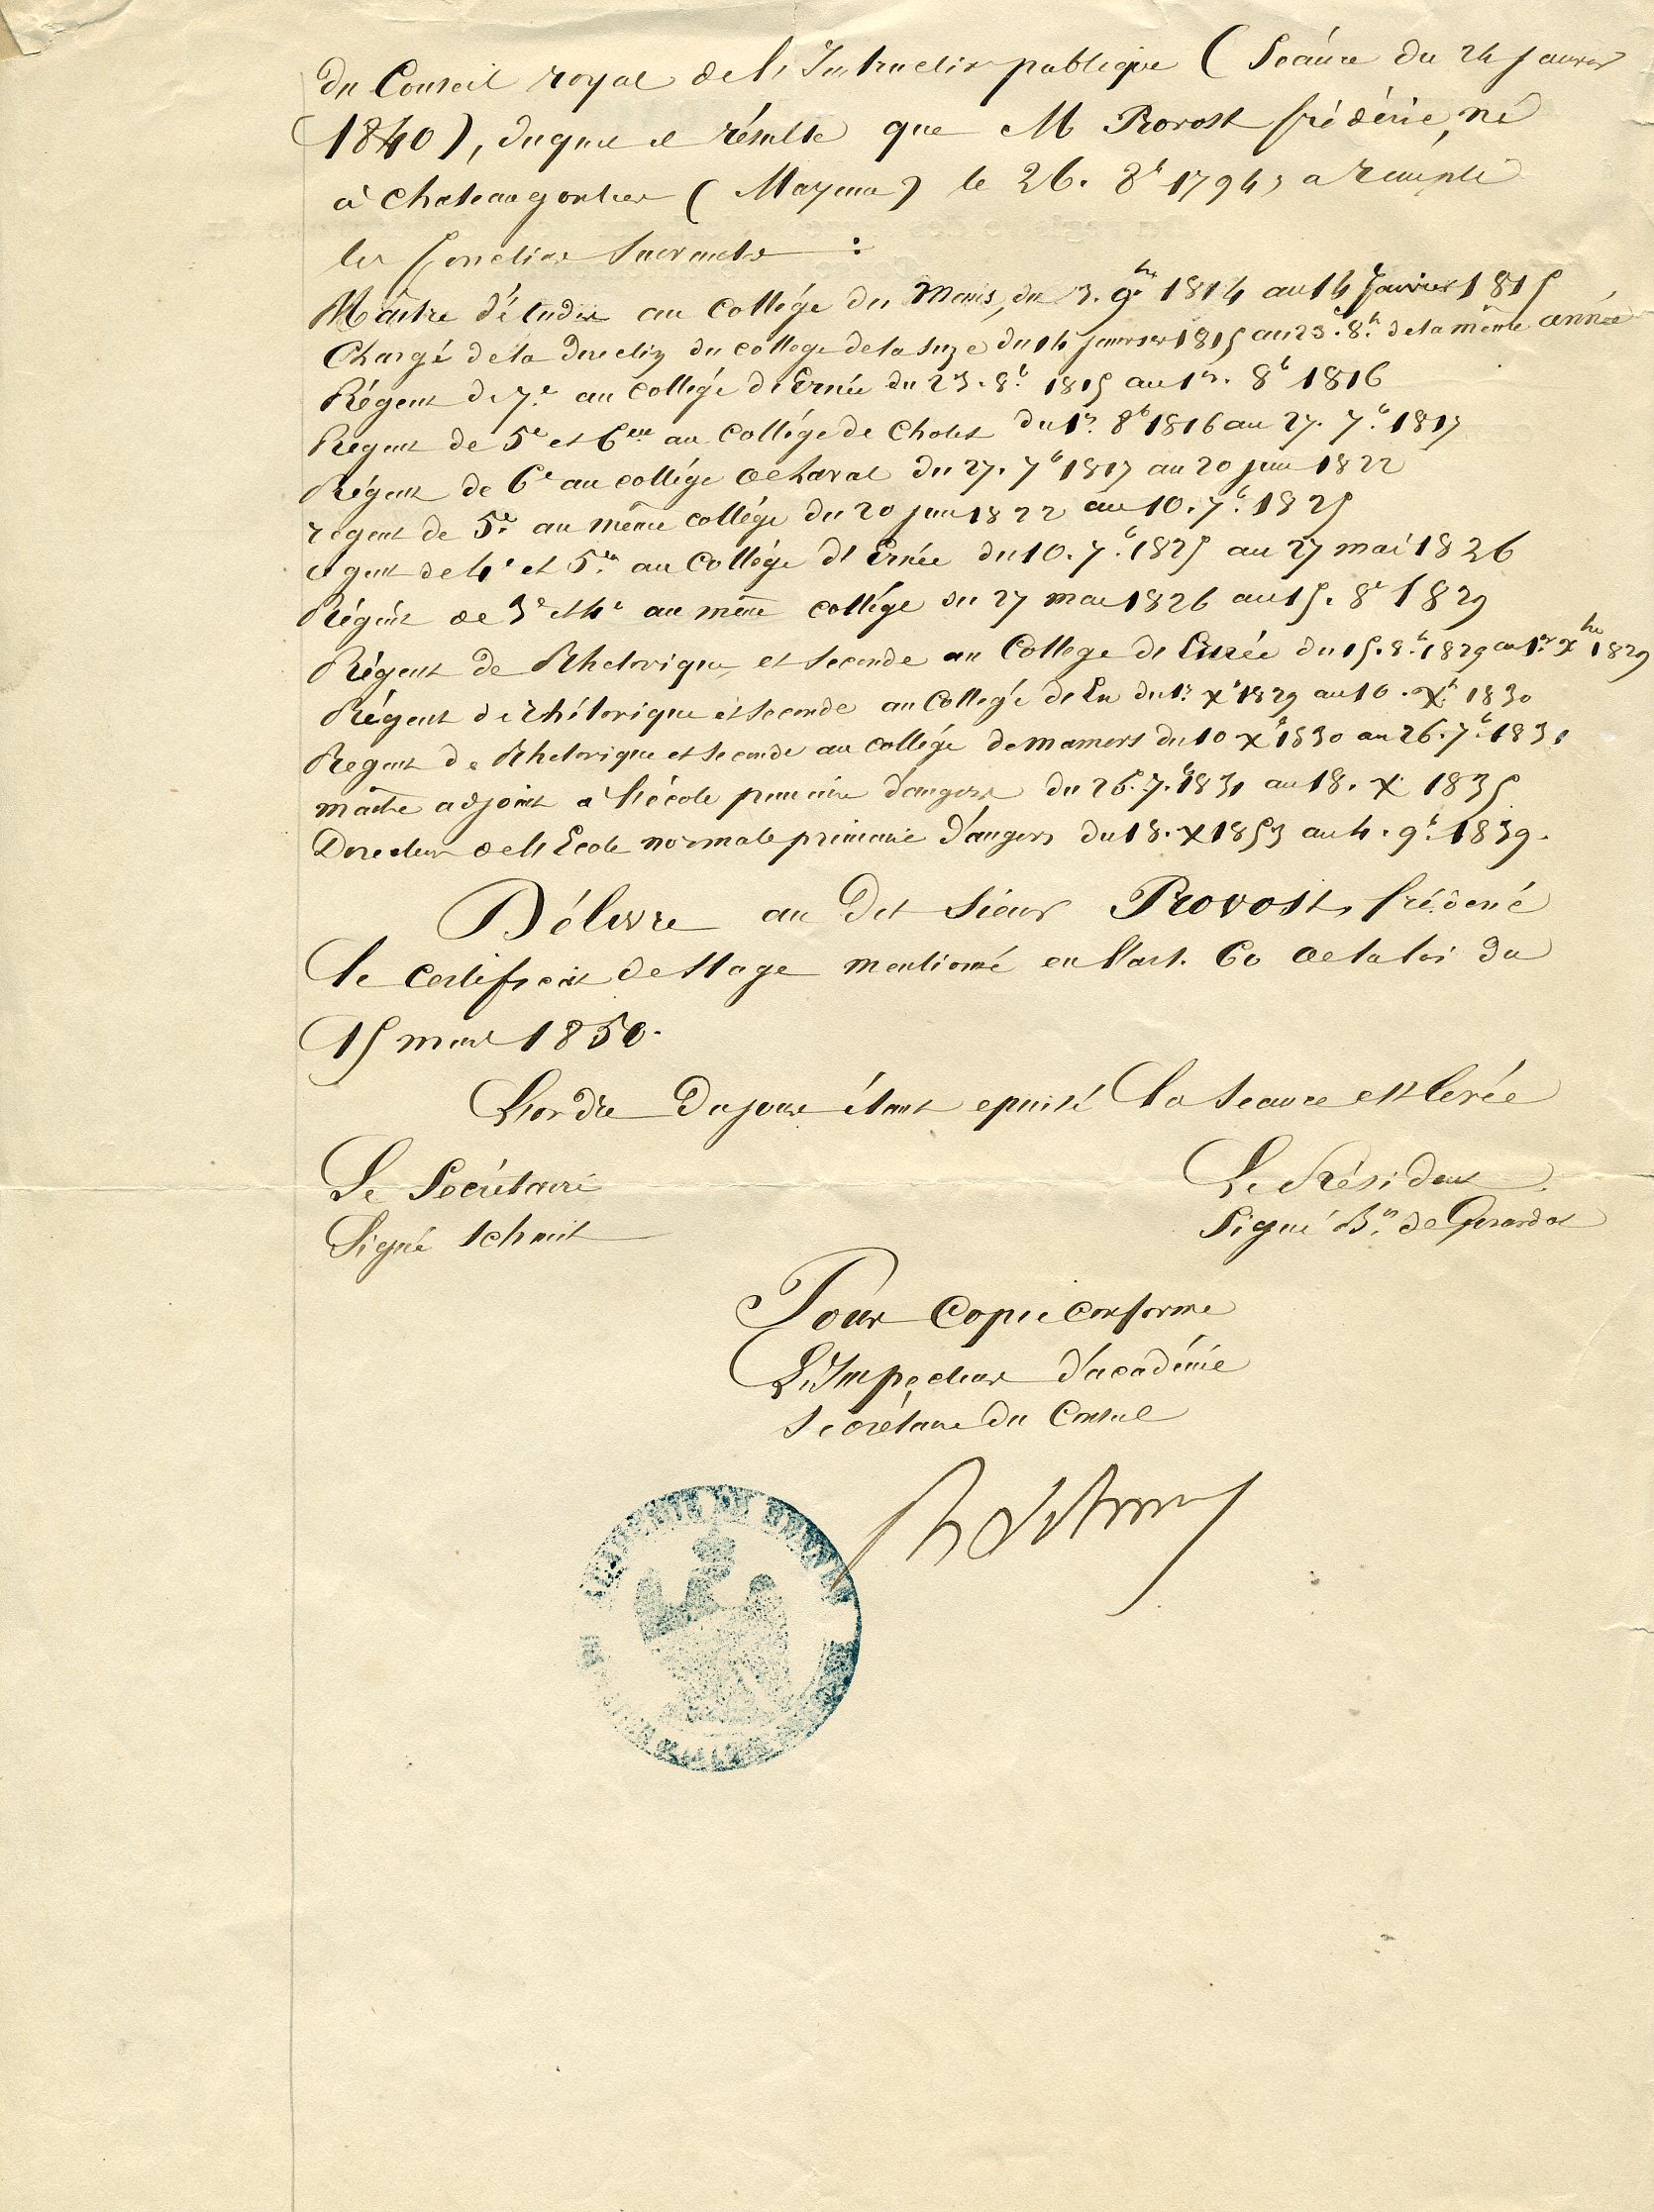 du Conseil royal de l'Instruction publique (Séance du 24 janvier
1840), duquel il résulte que M Provost frédéric, né
à chateaugontier (Mayenne) le 26. 8b 1794, a rempli
les fonctions suivantes :
Maître d'étudies au collège du Mans, du 3. 9bre 1814 au 14 Janvier 1815
Chargé de la direction du collège de la suze du 14 janvier 1815 au 23. 8b. de la même année
Régent de 7e au collège d'Ernée du 23. 8b 1815 au 1er. 8b 1816
Régent de 5e et 6eme au Collège de Cholet du 1er 8b 1816 au 27. 7b. 1817
Régent de 6e au collège de Laval du 27. 7b 1817 au 20 juin 1822
régent de 5e. au même collège du 20 juin 1822 au 10. 7b. 1825
régent de 4e et 5e au Collège d'Ernée du 10. 7b. 1825 au 27 mai 1826
Régent de 3e et 4e au même collège du 27 mai 1826 au 15. 8b 1829
Régent de Rhétorique et seconde au College de du 15. 8b. 1829 au 1er xbre 1829
Régent de rhétorique et seconde au Collegé de Eu du 1er xb 1829 au 10. xb. 1830
Regent de Rhetorique et seconde au collége de mamers du 10 xb 1830 au 26. 7b. 1831
maître adjoint à l'école primaire d'angers du 26. 7. b 1831 au 18. x 1835
Directeur de l'Ecole normale primaire d'angers du 18. x 1853 au 4. 9b. 1839.
Délivre au dit Sieur Provost, frédéric
le certificat de stage mentionné en l'art. 60 de la loi du
15 mars 1850.
L'ordre du jour étant epuisé la seance est levée
Le Secrétaire
Le Président
Signé Schmit
Signé Bon de Gerando
Pour Copie conforme
L'Inspecteur d'académie
Secrétaire du Conseil